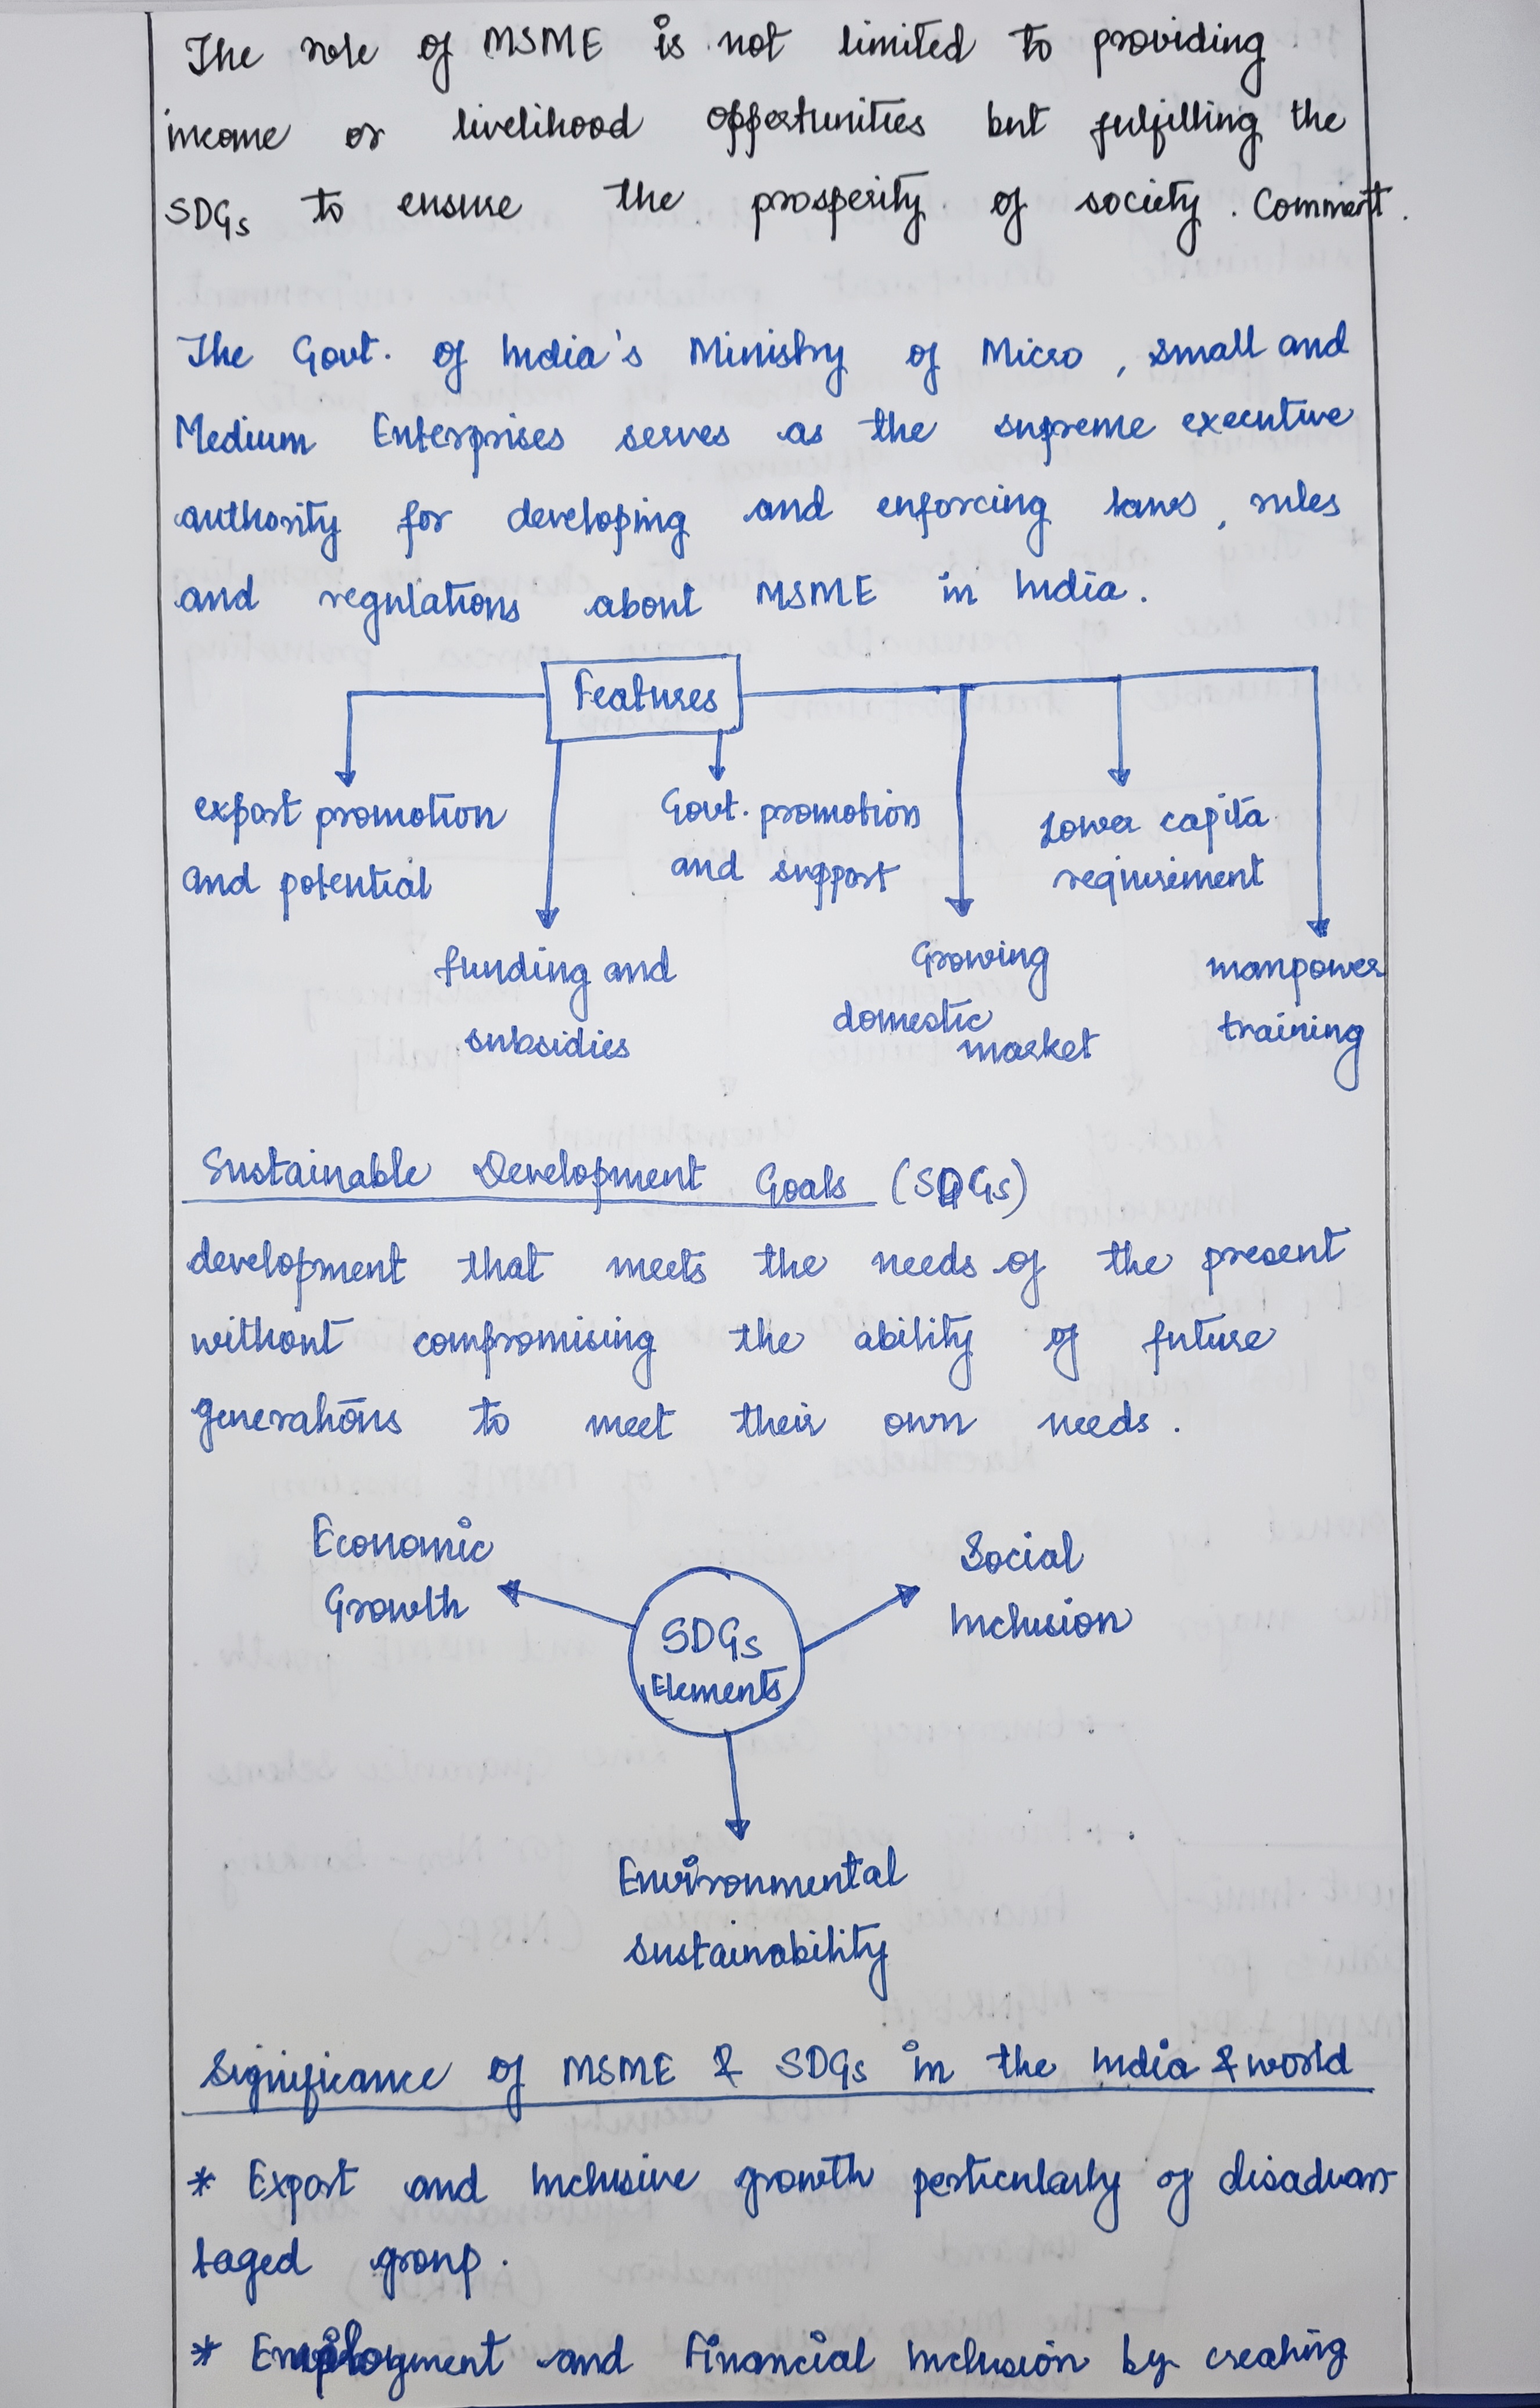 The role of MSME is not limited to providing
income or livelihood oppertunities but fulfilling the
SDGs to ensure the prosperity of society. Comment.
The Govt. of India's Ministry of Micro, small and
Medium Enterprises serves as the supreme executive
authority for developing and enforcing laws, rules
and regulations about MSME in India.
Features
export promotion
and potential
Govt. promotion
and support
Lower capita
requirement
funding and
subsidies
Growing
domestic
market
manpower
training
Sustainable Development Goals (SDGs)
development that meets the needs of the present
without compromising the ability of future
generations to meet their own needs.
Economic
Growth
Social
Inclusion
SDGs
Elements
Environmental
sustainability
Significance of MSME & SDGs in the India & world
* Export and Inclusive growth perticularly of disadvan
taged group.
* Employment and Financial Inclusion by creating